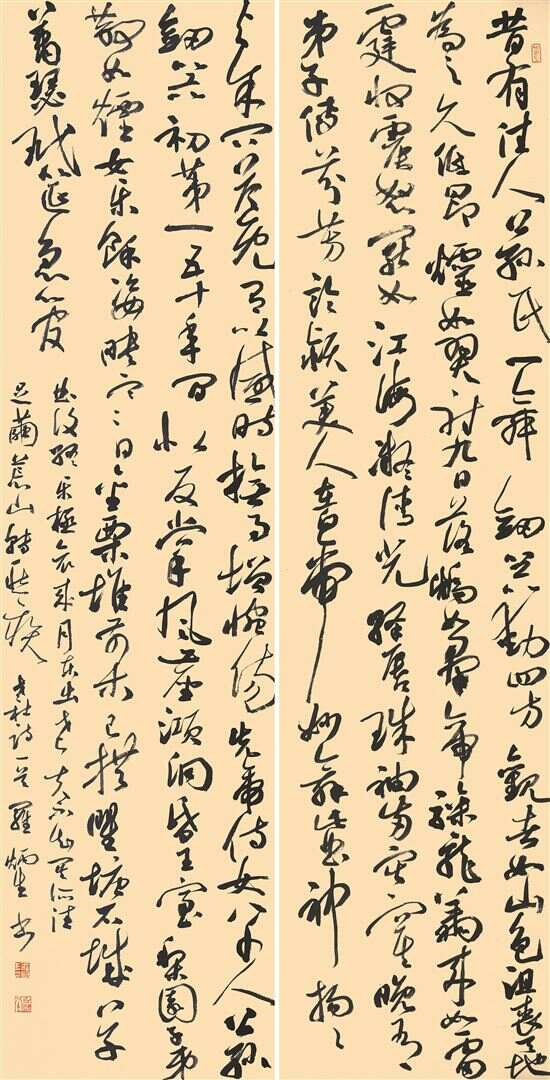 昔有佳人公孫氏一舞劍器動四方觀者如山色沮喪天地
為之久低昂㸌如羿射九日落矯如羣帝驂龍翔來如雷
霆收震怒罷如江海凝清光絳唇珠袖兩寂寞晚有
弟子傳芬芳臨潁美人在白帝妙舞此曲神揚揚
與余問答既有以感時撫事增惋傷先帝侍女八千人公孫
劍器初第一五十年間似反掌風塵澒洞昏王室梨園子弟
散如煙女樂餘姿映寒日金粟堆前木已拱瞿塘石城草
蕭瑟玳筵急管
曲復終樂極哀來月東出老夫不知其所往
足繭荒山轉愁疾 老杜詩一首 羅 書